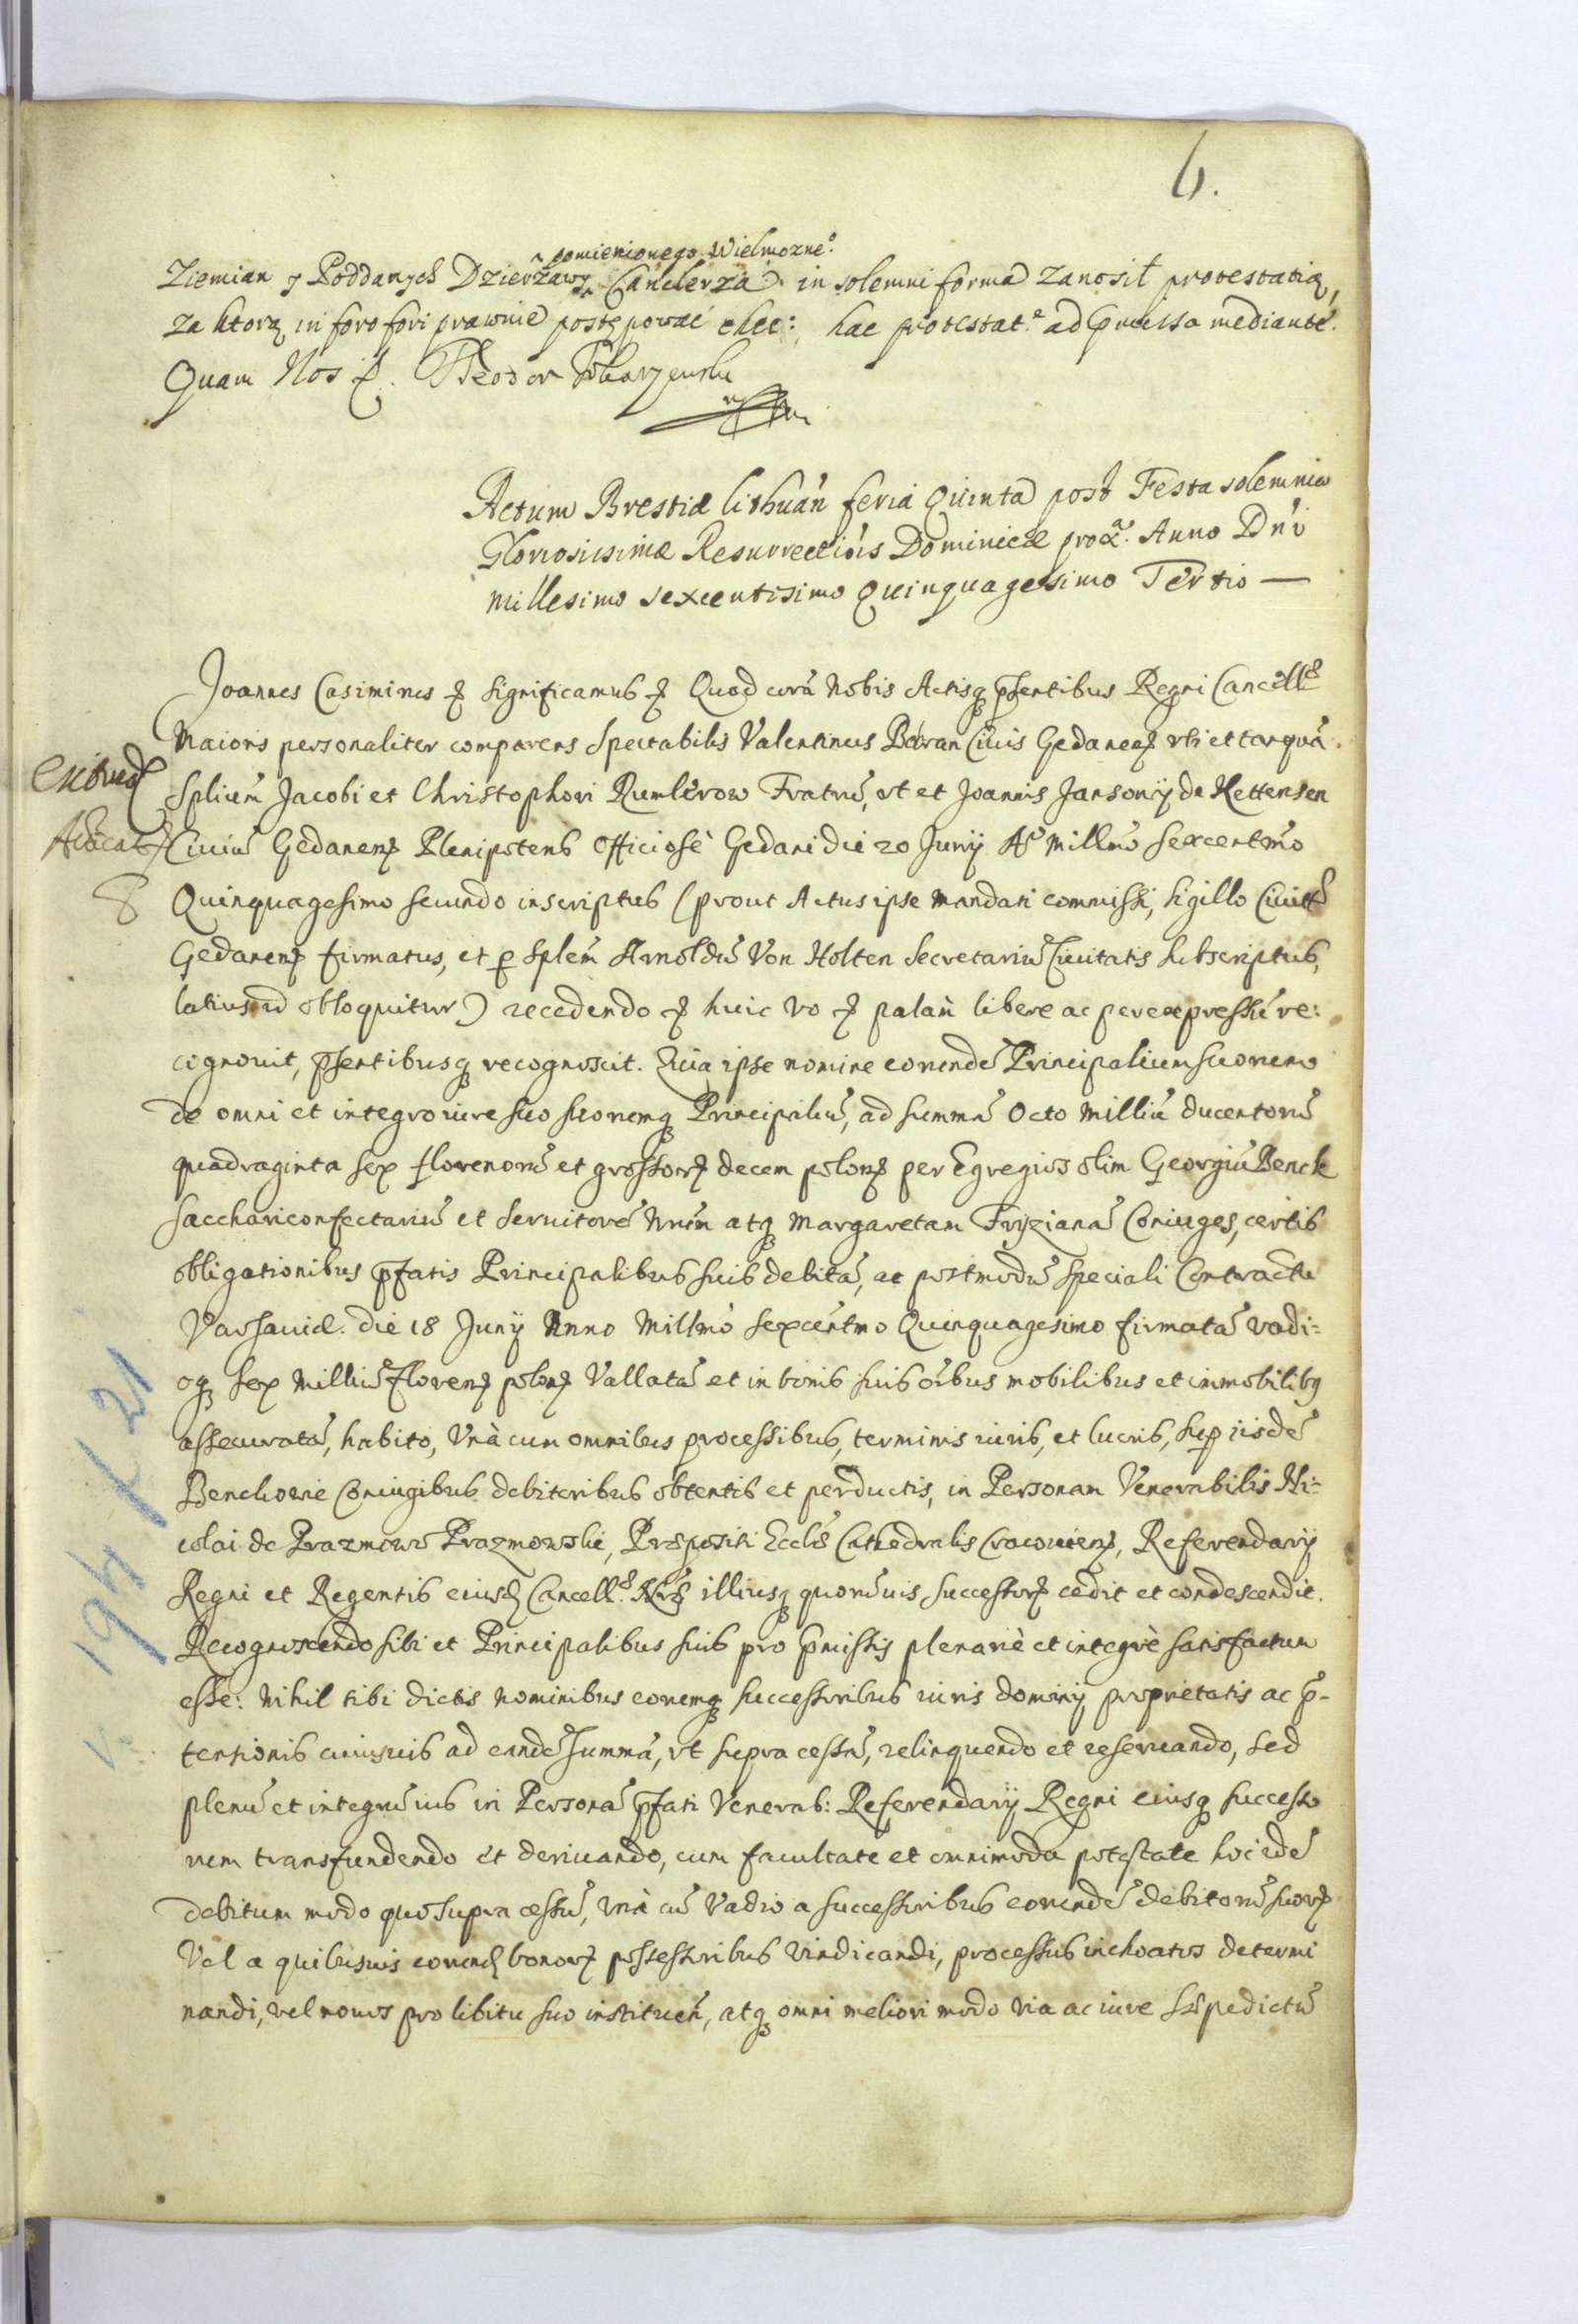 6.
pomienionego Wielmozne°
Ziemian y Poddanych Dzierżawy Canclerza in solemni forma zanosił protestatią,
za ktorą in foro fori prawnie postępować chce: hac protestat.e ad p̄missa mediante.
Quam Nos etc. Theodor
Actum Brestiæ lithuan̄ feria Quinta post Festa solemnia
Gloriosissimæ Resurrectiõis Dominicæ proxa. Anno Dn̄i
Millesimo sexcentisimo Quinquagesimo Tertio —
Joannes Casimirus etc significamus etc Quod corã Nobis Actisq p̄sentibus Regni Cancellæ
Maioris personaliter comparens Spectabilis Valentinus Baran Ciuis Gedanen̄ uti et tanquã
Spliũm Jacobi et Christophori Rumlerow Fratrũ, ut et Joannis Jansonÿ de Kettensen
Ciuiũ Gedanen̄ Plenipotens Officiosè Gedani die 20 Junÿ Aº Millmõ sexcentmõ
Quinquagesimo secundo inscriptus (prout Actus ipse Mandati commissi, sigillo Ciuittis
Gedanen̄ firmatus, et p Splem̃ Arnoldũ Von Holten Secretariũ Ciuitatis subscriptus,
latius id obloquitur) recedendo etc huic vo etc palam̀ libere ac per expressũ re:
cognouit, p̄sentibusq recognoscit. Quia ipse nomine eorundẽ Principalium suorum
de omni et integro iure suo suorumq Principaliũ, ad summã Octo Milliũ ducentorũ
quadraginta sex florenorũ et grossor̃ decem polon̄ per Egregios olim Georgiũ Benck
Sacchariconfectariũ et seruitorẽ Nrũm atq Margaretam Fryzianã Coniuges, certis
obligationibus p̄fatis Principalibus suis debitã, ac postmodũ speciali Contractu
Varsauiæ die 18 Junÿ Anno Millmõ sexcentmõ Quinquagesimo firmatã vadi=
oq sex Milliũ floren̄ polon̄ Vallatã et in bonis suis oĩbus mobilibus et immobilibq
assecuratã, habito, Vnà cum omnibus processibus, terminis iuris, et lucris, sup iisdẽ
Benckowie Coniugibus debitoribus obtentis et perductis, in Personam Venerabilis Ni=
colai de Prazmow Prazmowski, Præpositi Ecclæ Cathedralis Cracouien̄, Referendarÿ
Regni et Regentis eiusd Cancellæ Nræ illiusq quorũuis successor̃ cedit et condescendit.
Recognoscendo sibi et Principalibus suis pro p̄missis plenariè et integrè satisfactum
esse: Nihil sibi dictis nominibus eorumq successoribus iuris dominÿ proprietatis ac p̄-
tensionis cuiusuis ad eandẽ Summã, ut supra cessã, relinquendo et reseruando, sed
plenũ et integrũ ius in Personã p̄fati Venerab: Referendarÿ Regni eiusq successo
rum transfundendo et deriuando, cum facultate et omnimoda potestate hoc idẽ
debitum modo quo supra cessũ, vnà cũ Vadio a successoribus eorundẽ debitorũ suor̃
Vel a quibusuis eorund bonor̃ possessoribus vindicandi, processus inchoatos determi
nandi, vel nouos pro libitu suo instituen̄, atq omni meliori modo via ac iure sæpedictũ